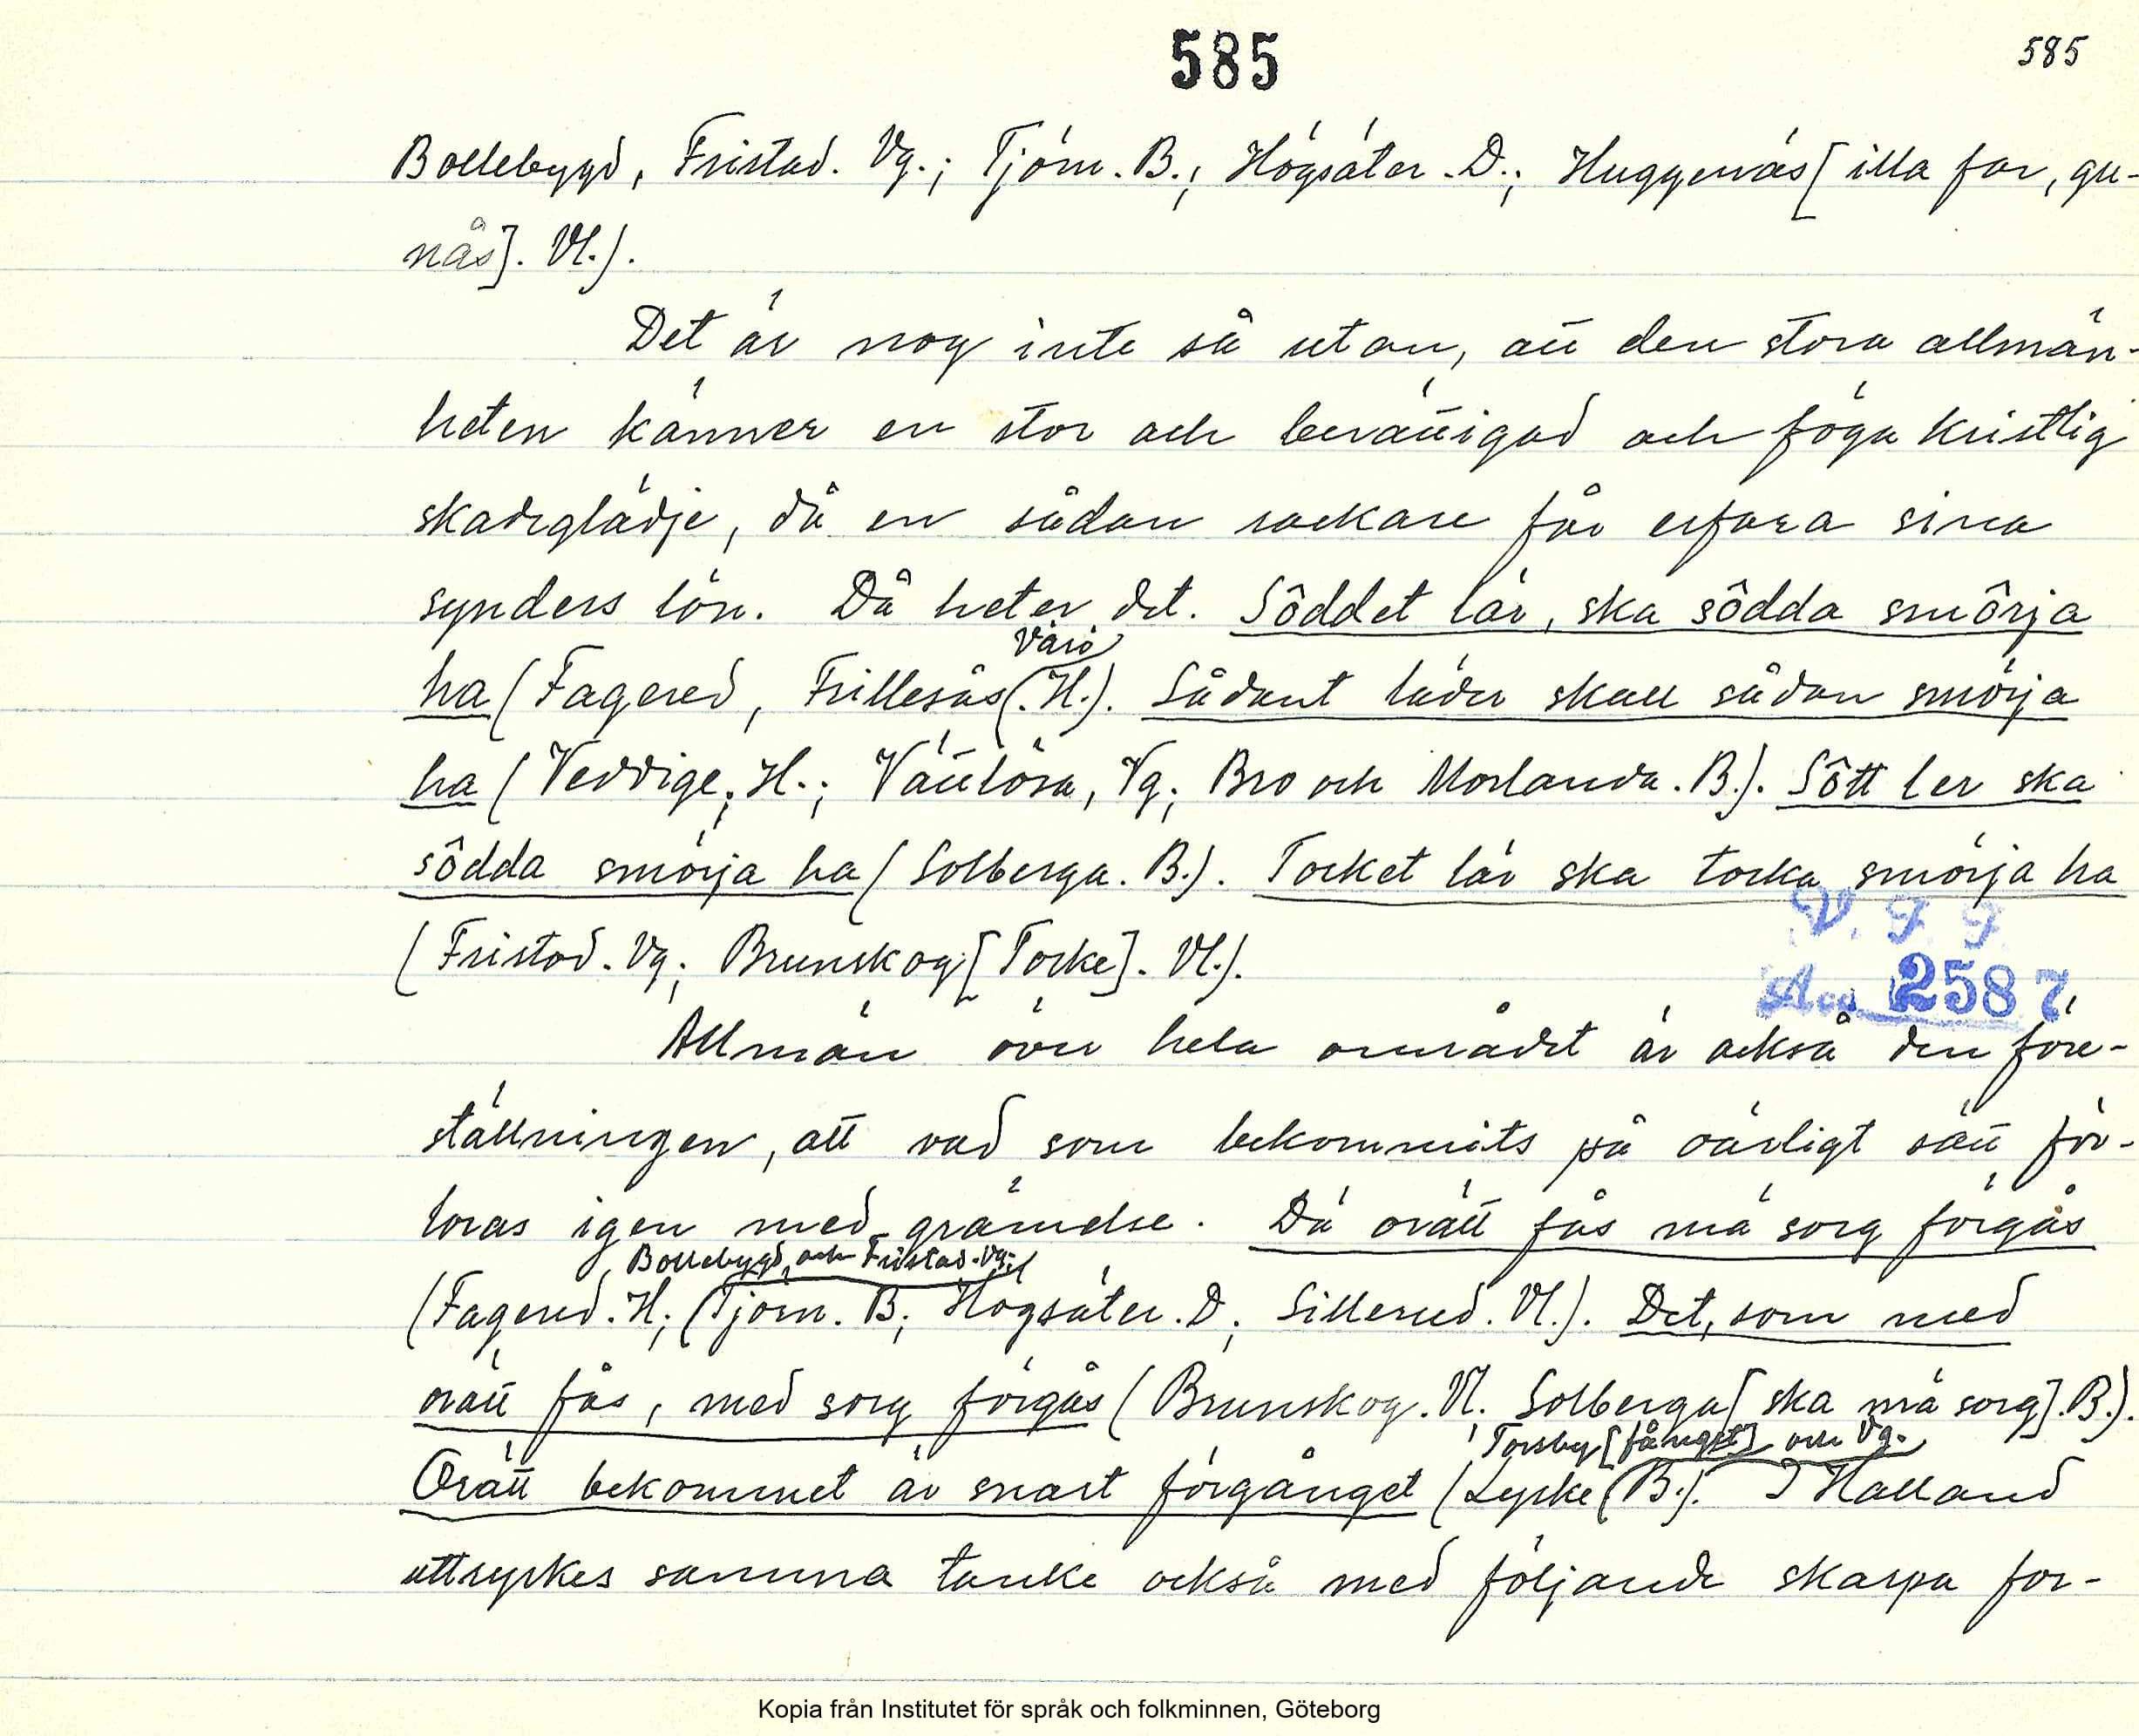 585
585
Bollebygd, Fristad. Vg.; Tjörn. B.; Högsäter. D.; Huggenäs [illa far, gu-
nås]. Vl.).
Det är nog inte så utan, att den stora allmän-
heten känner en stor och berättigad och föga kristlig
skadeglädje, då en sådan rackare får erfara sina
synders lön. Då heter det. Sôddet lär, ska sôdda smôrja
Värö
ha (Fagered, Frillesås (. H.). Sådant läder skall sådan smörja
ha (Veddige. H.; Vättlösa, Vg.; Bro och Morlanda. B.). Sôtt ler ska
sôdda smörja ha (Solberga. B.). Tocket lär ska tocka smörja ha
V. F. F.
(Fristad. Vg.; Brunskog [Tocke]. Vl.).
Acc. 2587
Allmän över hela området är också den före-
ställningen, att vad som bekommits på oärligt sätt för-
loras igen med grämelse. Dä orätt fås mä sorg förgås
Bollebygd och Fristad. Vg.;
(Fagered. H.; (Tjörn. B.; Högsäter. D.; Sillerud. Vl.). Det, som med
orätt fås, med sorg förgås (Brunskog. Vl. Solberga [ska mä sorg]. B.).
Torsby [fånget] och Vg.
Orätt bekommet är snart förgånget (Lycke (B.). I Halland
uttryckes samma tanke också med följande skarpa for-
Kopia från Institutet för språk och folkminnen, Göteborg